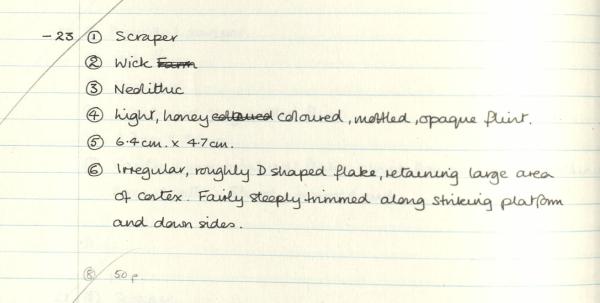 -23 ① Scraper
② Wick Farm
③ Neolithic
④ Light, honey coloured coloured, mottled, opaque flint.
⑤ 6.4cm. x 4.7cm.
⑥ Irregular, roughly D shaped flake, retaining large area
of cortex. Fairly steeply trimmed along striking platform
and down sides.
⑧ 50p.